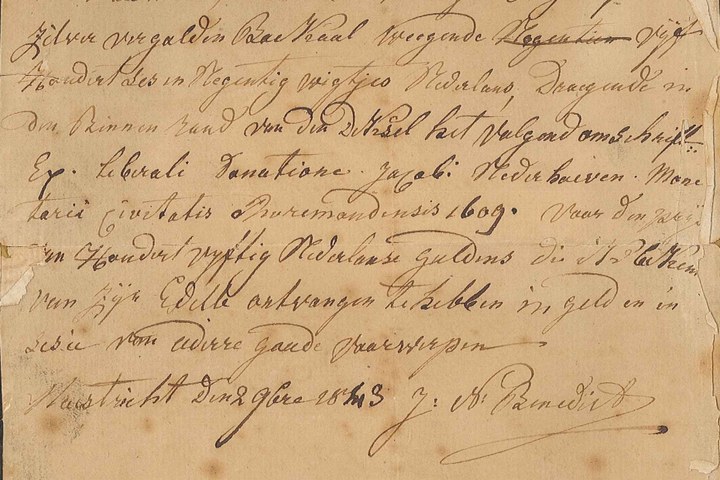 Zilver vergulden Bockaal weegende Negentien vijf
Hondert ses en Negentig wigtjes Nederlans, Draegende in
den Binnen rand van den Deksel het volgend omschrift:
Ex. Leberali Donatione. Jacobi Nederhoeven. Mone
tarii Civitatis Roremondensis 1609. voor den prijs
van Hondert vyftig Nederlanse guldens die ik
van zijn Edelle ontvangen te hebben in geld en in
van adirre goude voorwerpen
Mastricht den 2 9bre 1843 J: N: Benedict